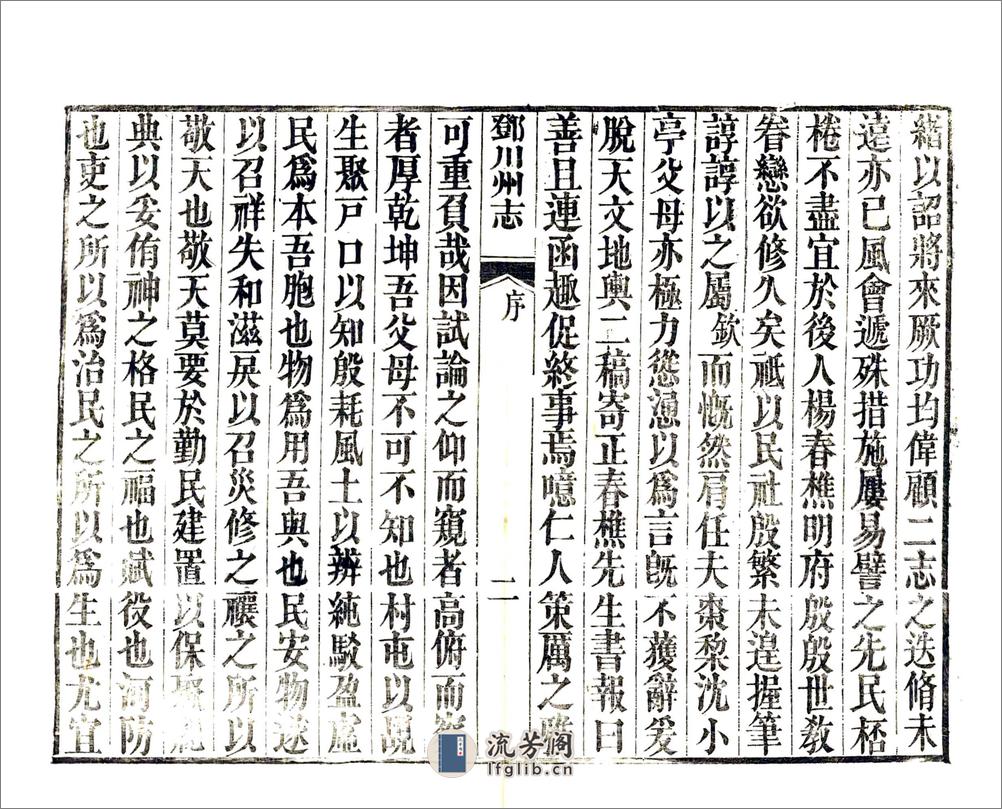 緒以詔將來厥功均偉顧二志之迭脩未
遠亦已風會遞殊措施屢易譬之先民桮
棬不盡宜於後人楊春樵明府殷殷世教
眷戀欲修久矣祗以民社殷繁未遑握筆
諄諄以之屬欽而慨然肩任夫棗棃沈小
亭父母亦極力慫慂以爲言旣不獲辭爰
脫天文地輿二稿寄正春樵先生書報曰
善且連函趣促終事焉噫仁人策厲之
鄧川州志
序
二
可重負哉因試論之仰而窺者高俯而
者厚乾坤吾父母不可不知也村屯以覘
生聚戸口以知殷耗風土以辨純駁盈虛
民爲本吾胞也物爲用吾與也民安物遂
以召祥失和滋戾以召災修之禳之所以
敬天也敬天莫要於勤民建置以保聚
典以妥侑神之格民之福也賦役也河防
也吏之所以爲治民之所以爲生也尤宜
流芳阁
lfglib.cn